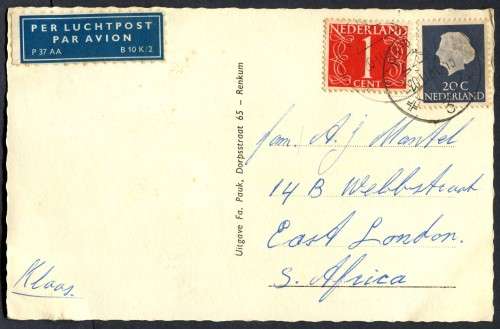 PER LUCHTPOST
PAR AVION
P 37 AA B 10 K/2
NEDERLAND
1
CENT
20 C
NEDERLAND
Uitgave Fa. Pauk, Dorpsstraat 65 - Renkum
fam. A. J Mantel
14 B Webbstraat
East London.
S. Africa
Klaas.